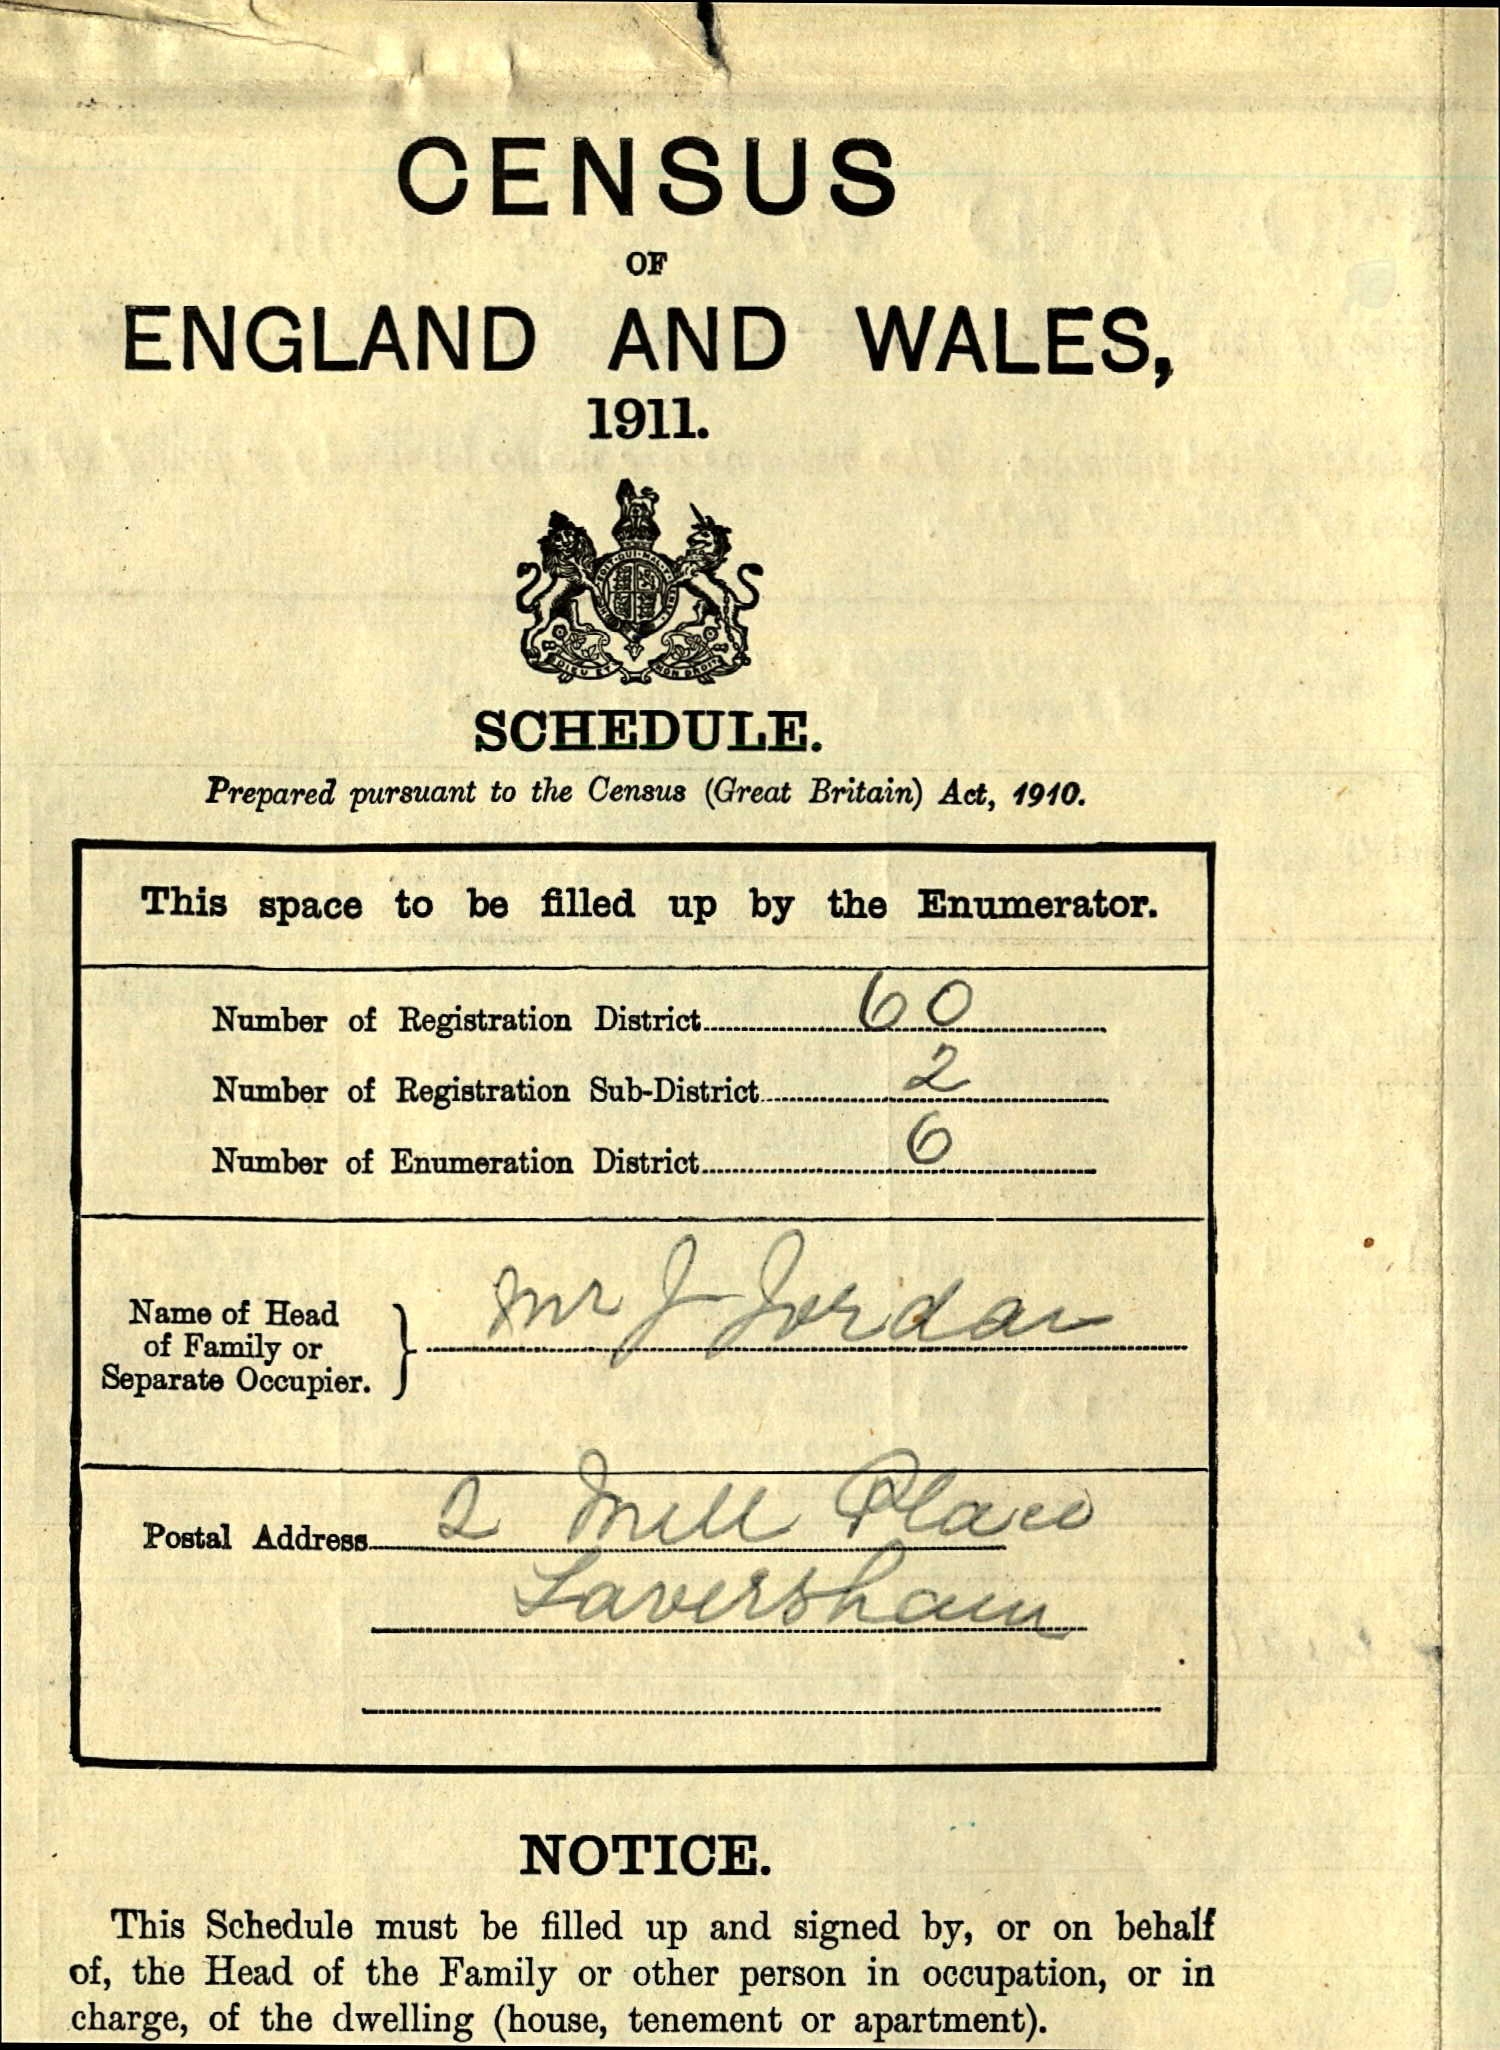 CENSUS
OF
ENGLAND AND WALES,
1911.
DIEU ET MON DROIT
SCHEDULE.
Prepared pursuant to the Census (Great Britain) Act, 1910.
This space to be filled up by the Enumerator.
Number of Registration District 60
Number of Registration Sub-District 2
Number of Enumeration District 6
Name of Head
of Family or
Separate Occupier.
Mr J Jordan
Postal Address 2 Mill Place
Faversham
NOTICE.
This Schedule must be filled up and signed by, or on behalf
of, the Head of the Family or other person in occupation, or in
charge, of the dwelling (house, tenement or apartment).